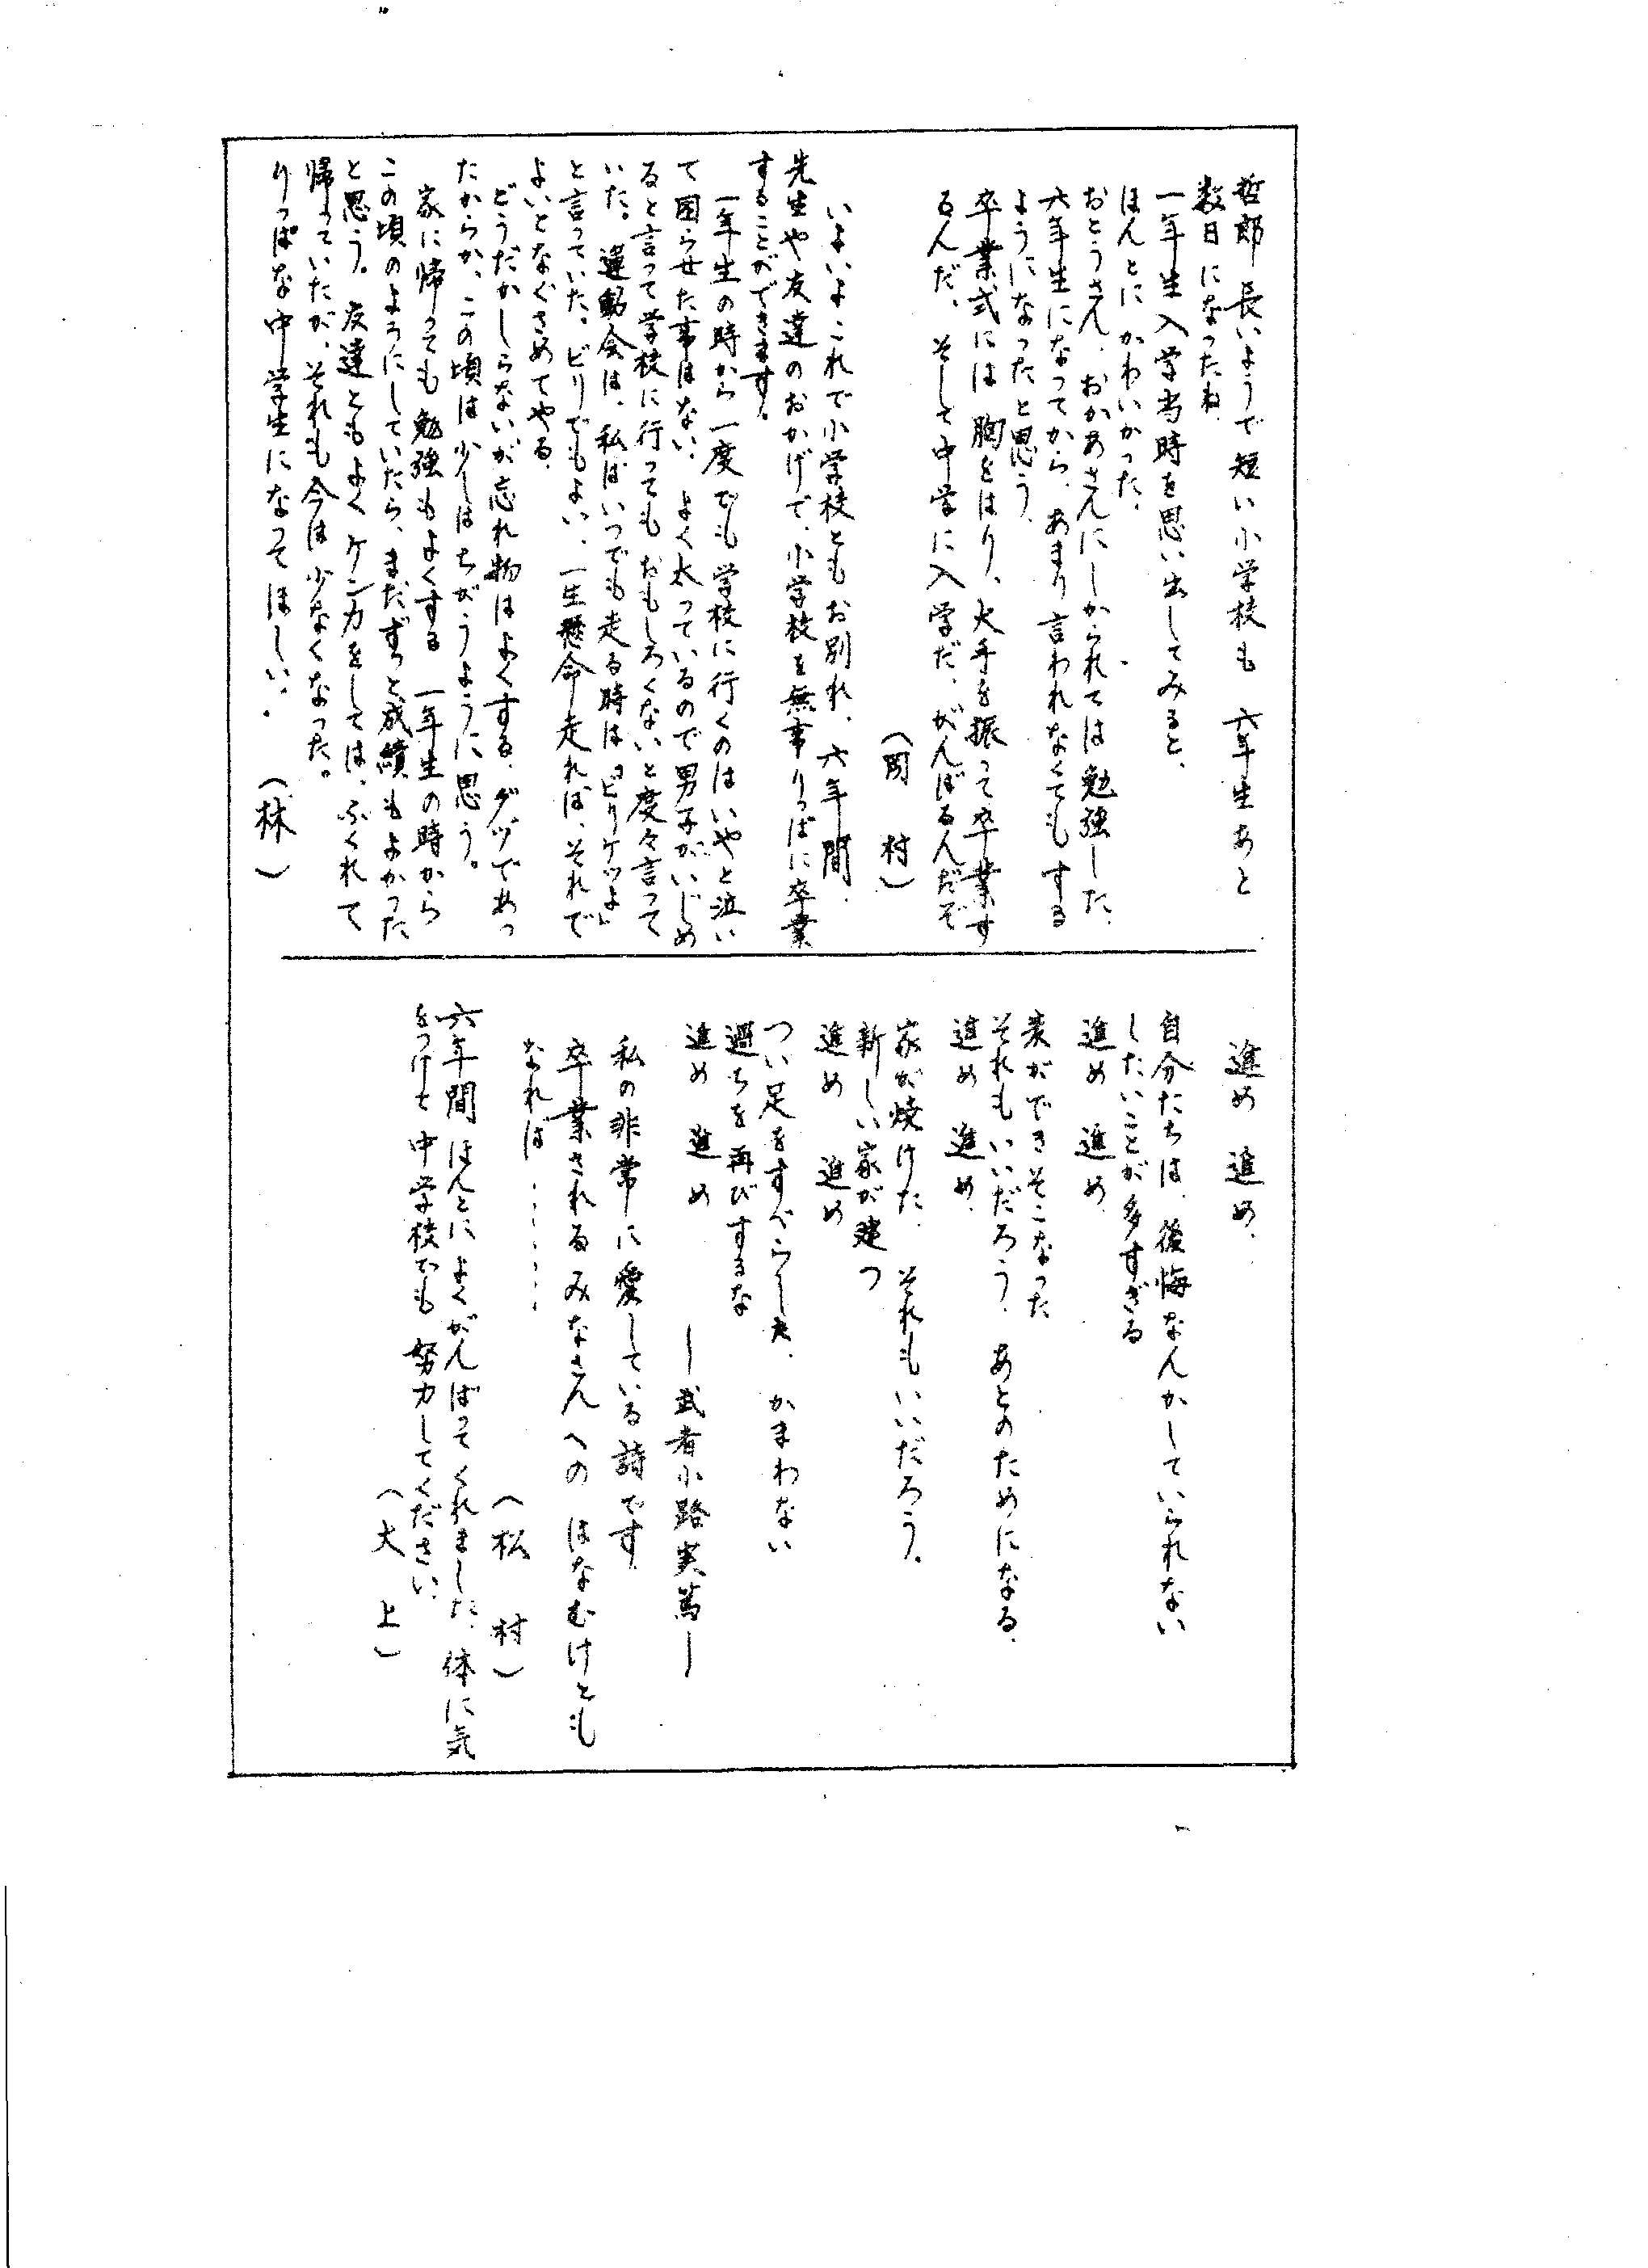 哲郎 長いようで短い小学校も 六年生あと
数日になったね、
一年生入学当時を思い出してみると、
ほんとに かわいかった、
おとうさん、おかあさんにしかられては勉強した、
六年生になってから、あまり言われなくても する
ようになったと思う、
卒業式には 胸をはり、大手を振って卒業す
るんだ、そして中学に入学だ、がんばるんだぞ
（岡 村）
いよいよこれで小学校ともお別れ、六年間、
先生や友達のおかげで、小学校を無事りっぱに卒業
することができます。
一年生の時から一度でも学校に行くのはいやと泣い
て困らせた事はない、よく太っているので男子がいじめ
ると言って学校に行っても おもしろくないと度々言って
いた。運動会は、私はいつでも走る時は「ビリケツよ」
と言っていた。ビリでもよい、一生懸命走れば、それで
よいとなぐさめてやる、
どうだかしらないが忘れ物はよくする、グヅであっ
たからか、この頃は少しはちがうように思う。
家に帰っても勉強もよくする 一年生の時から
この頃のようにしていたら、まだずっと成績もよかった
と思う。友達ともよくケンカをしては、ふくれて
帰っていたが、それも今は少なくなった。
りっぱな中学生になってほしい、
（林）
進め 進め、
自分たちは、後悔なんかしていられない
したいことが多すぎる
進め 進め
茶ができそこなった
それもいいだろう、あとのためになる、
進め 進め、
家が焼けた、それもいいだろう。
新しい家が建つ
進め 進め
つい足をすべらした、かまわない
過ちを再びするな
進め 進め
—武者小路実篤—
私の非常に愛している詩です
卒業されるみなさんへの はなむけとも
なれば……
（松 村）
六年間 ほんとによくがんばってくれました、体に気
をつけて 中学校でも 努力してください、
（大 上）